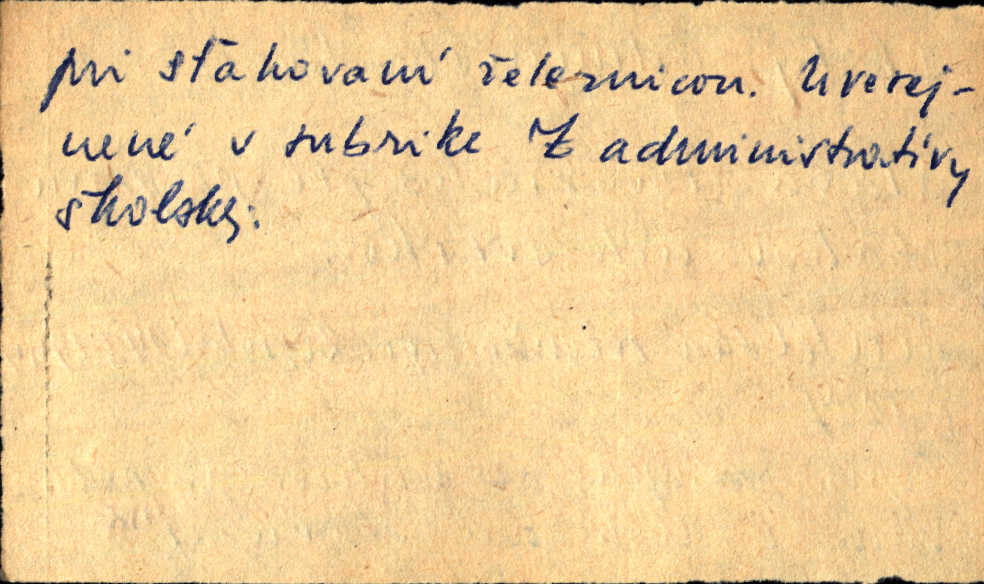 pri sťahovaní železnicou. Uverej-
nené v rubrike Z administratívy
školskej.